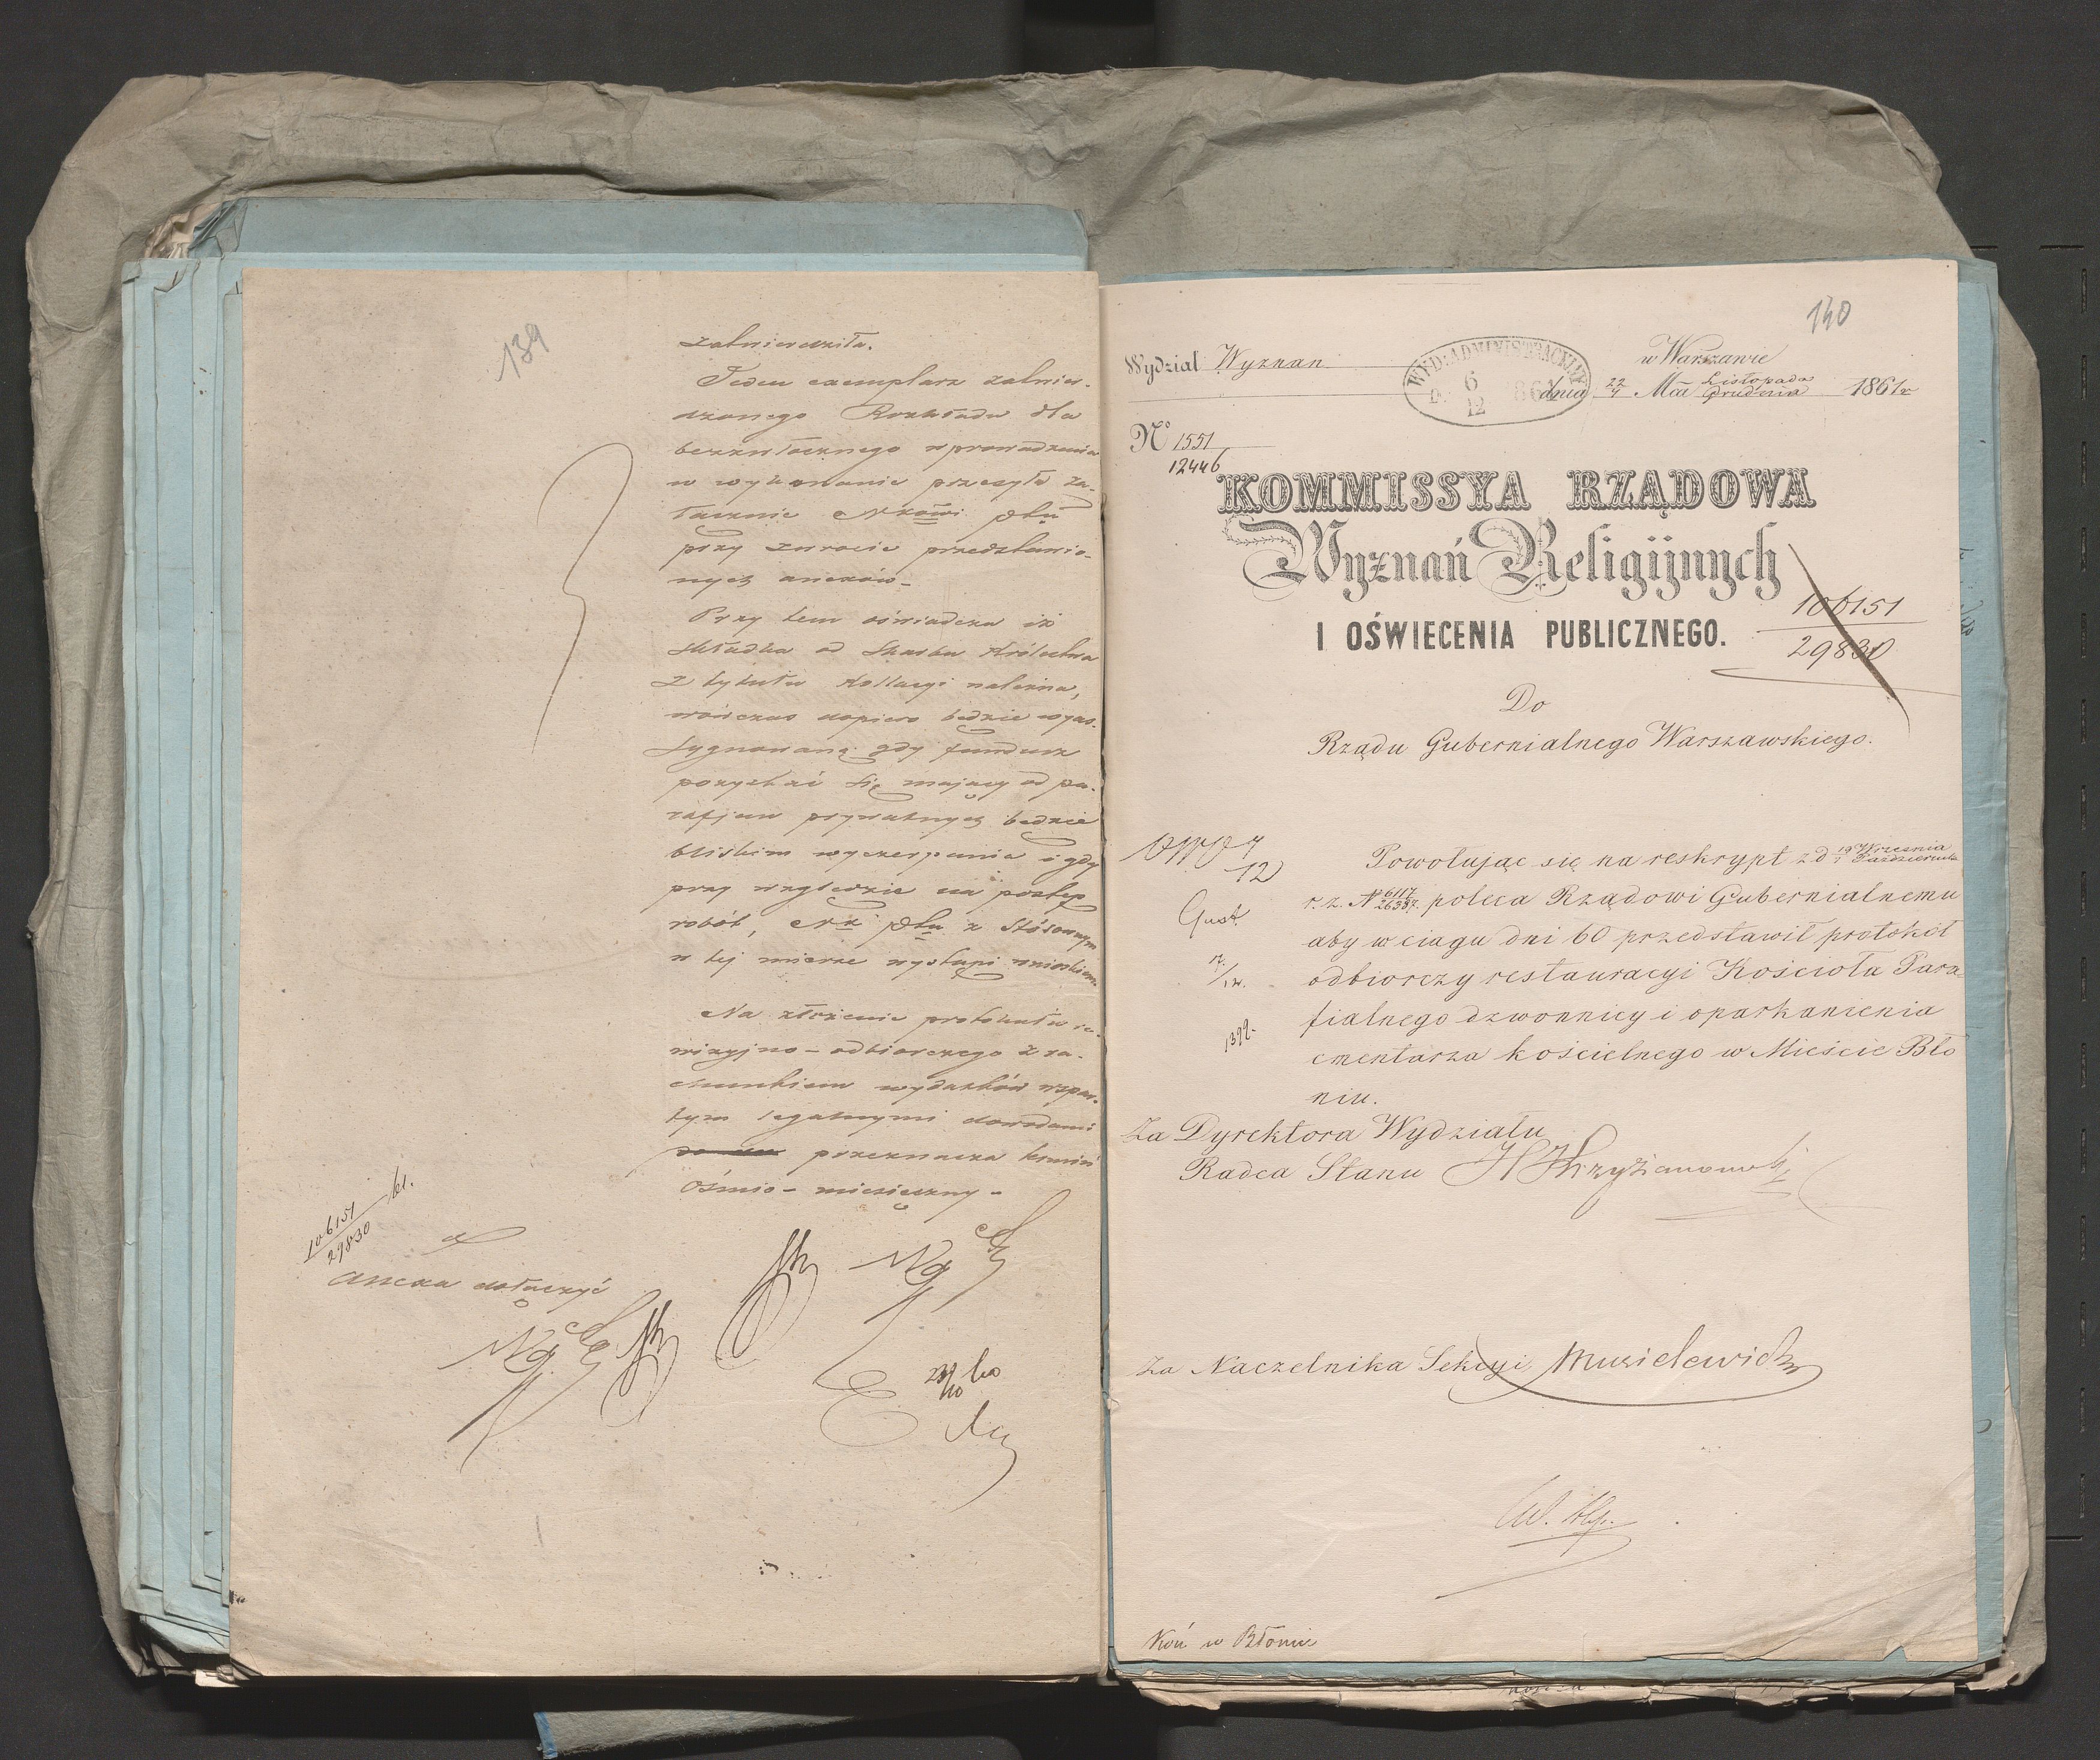 139
zatwierdziła.
Jeden exemplarz zatwier-
dzonego Rozkładu dla
bezzwłocznego wprowadzenia
w wykonanie przesyła za-
łacznie Nkowi Ptu
przy zwrocie przedstawio-
nych anexów.
Przy tem oświadcza iż
składka od Skarbu Królestwa
z tytułu Kollacyi należna,
wówczas dopiero będzie wyas-
sygnowaną gdy fundusz
pozyskać się mający od pa-
rafjan prywatnych będzie
bliskim wyczerpania i gdy
przy względzie na postęp
robót, Nk Ptu z stósownym
w tej mierze wystąpi wnioskiem.
Na złożenie protokułu re-
wizyjno-odbiorczego z ra-
chunkiem wydatków wspar-
tym legalnymi dowodami
przeznacza termin
Ośmio-miesięczny-
106151
29830
Anexa dołączyć
140
Wydział Wyznan
WYD: ADMINISTRACYJNY
D. 6/12 861
w Warszawie
dnia 22/4 Mca Listopada/Grudnia 1861 r
No 1551
12446
KOMMISSYA RZĄDOWA
Wyznań Religijnych
I OŚWIECENIA PUBLICZNEGO.
106151
29830
Do
Rządu Gubernialnego Warszawskiego.
Powołując się na reskrypt z d 19 Września/1 Października
r. z. N 6117/26387. poleca Rządowi Gubernialnemu
aby w ciągu dni 60 przedstawił protokół
odbiorczy restauracyi Kościoła Para-
fialnego dzwonnicy i oparkanienia
cmentarza kościelnego w Mieście Bło
niu.
Za Dyrektora Wydziału
Radca Stanu H Krzyżanowski
Za Naczelnika Sekcyi Musielewicz
w Błoniu